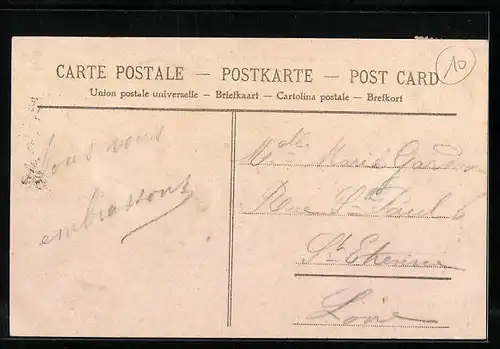 10
CARTE POSTALE — POSTKARTE — POST CARD
Union postale universelle – Briefkaart – Cartolina postale – Brefkort
Nous vous
embrassons
Mdlle Marie
Rue St Paul 6
St Etienne
Loire